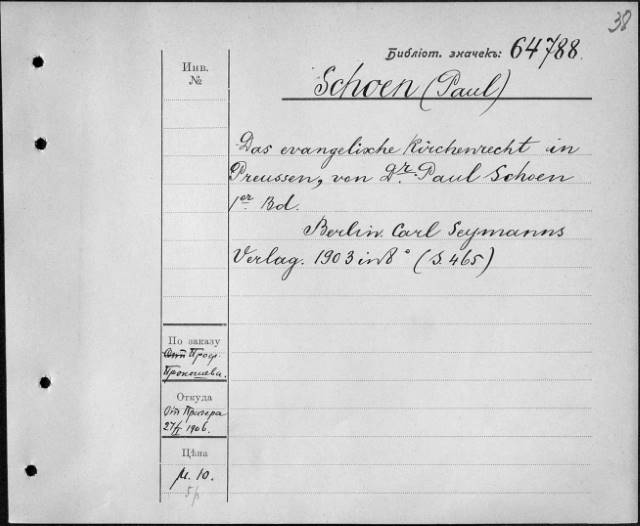 38
Библіот. значекъ: 64788.
Инв.
№
Schoen (Paul)
Das evangelische Kirchenrecht in
Preussen, von Dr. Paul Schoen
1er Bd.
Berlin. Carl Seymanns
Verlag. 1903 in 8° (S. 465)
По заказу
Проф.
Прокошева.
Откуда
Отъ Прагера
1906.
Цѣна
М. 10.
5 р